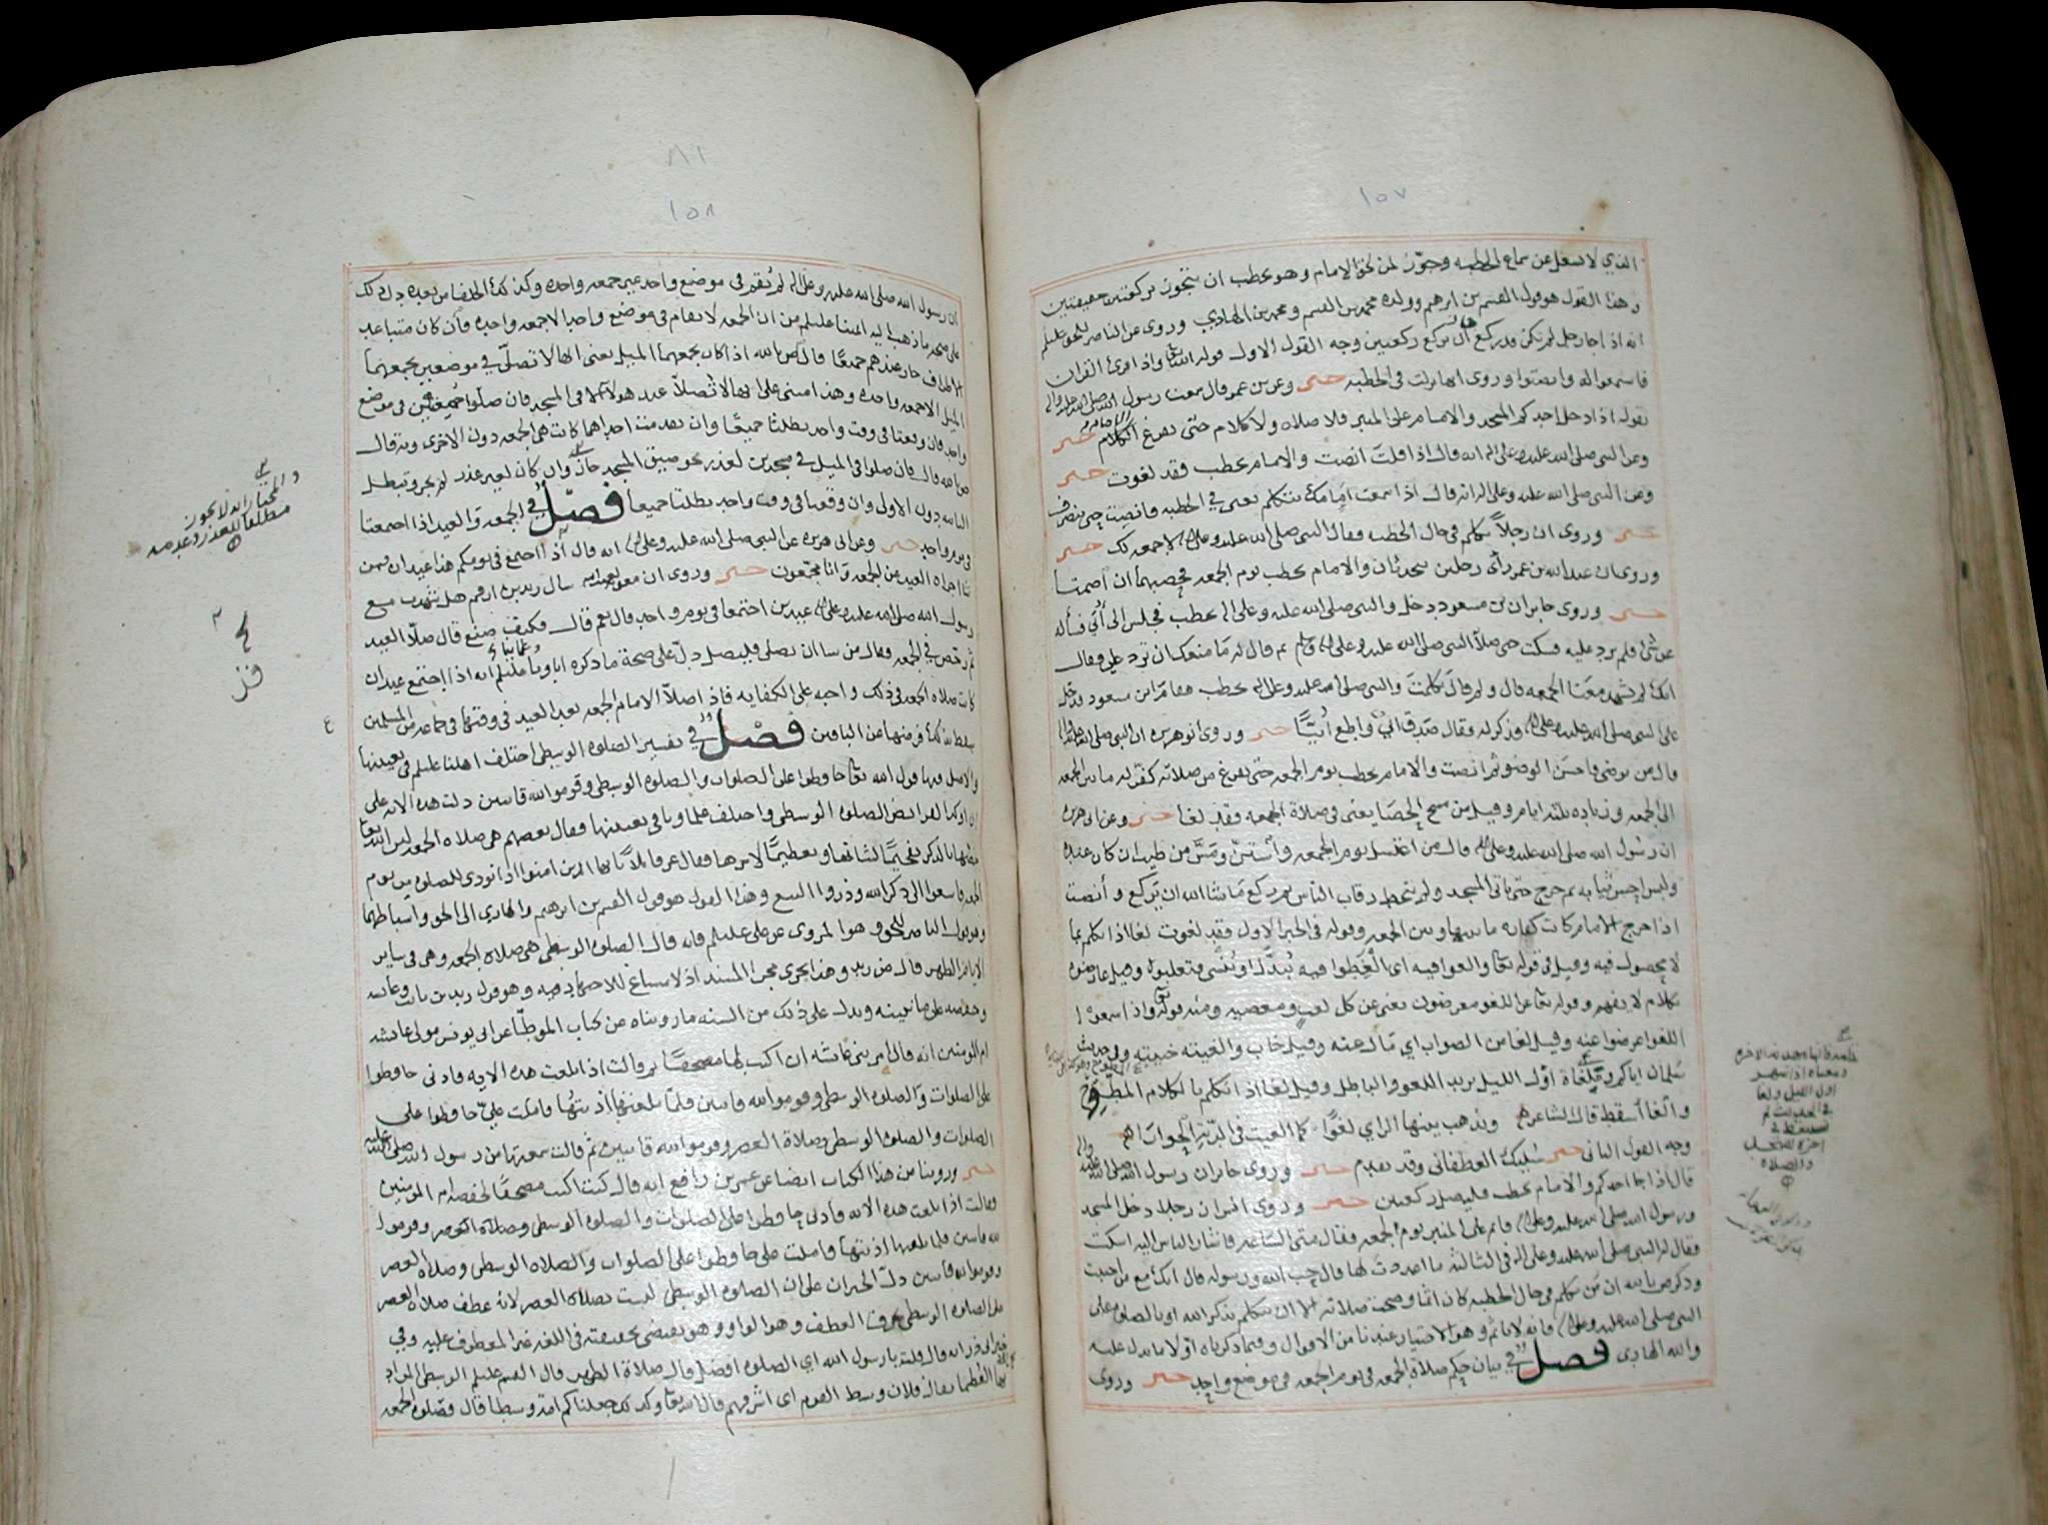 ١٥٧
الذي لا يشغل عن سماع الخطبه وجوّز لمن لحق الامام وهو يخطب ان يتجوز بركعتين خفيفتين
وهذا القول هو قول القسم بن ابرهيم وولده محمد بن القسم ومحمد بن الهادي وروى عن الناصر للحق عليلم
انه اذا جا رجل لم يكن قد ركع ان يركع ركعتين وجه القول الاول قوله الله تعا واذا قرئ القران
فاستمعوا له وانصتوا وروى انها نزلت في الخطبه خبر وعن بن عمر قال سمعت رسول الله صلى الله عليه واله
يقول اذا دخل احدكم المسجد والامام على المنبر فلا صلاه ولا كلام حتى يفرغ الامام خبر
وعن النبي صلى الله عليه وعلى اله انه قال اذا قلت انصت والامام يخطب فقد لغوت خبر
وعن النبي صلى الله عليه وعلى اله انه قال اذا سمعت امامك يتكلم يعنى في الخطبه فانصت حتى ينصرف
خبر وروى ان رجلاً تكلم في حال الخطبه فقال النبي صلى الله عليه وعلى اله لا جمعه لك خبر
وروى ان عبد الله بن عمر رأى رجلين يتحدثان والامام يخطب يوم الجمعه فحصبهما ان اصمتا
خبر وروى جابر ان بن مسعود دخل والنبي صلى الله عليه وعلى اله يخطب فجلس الى أُبيّ فسأله
عن شئ فلم يرد عليه فسكت حتى صلا النبي صلى الله عليه وعلى اله وسلم ثم قال له ما منعك ان ترد علي فقال
انك لم تشهد معنا الجمعه قال ولم قال تكلمت والنبي صلى الله عليه وعلى اله يخطب فقام ابن مسعود فدخل
على النبي صلى الله عليه وعلى اله فذكر له فقال صدق ابي واطع أُبيّاً خبر وروى ابو هريره ان النبي صلى الله عليه واله
قال من توضى فاحسن الوضو ثم انصت والامام يخطب يوم الجمعه حتى يفرغ من صلاته كفّر له ما بين الجمعه
الى الجمعه وزياده ثلثه ايام وقيل من مسح الحصا يعنى في صلاة الجمعه فقد لغا خبر وعن ابي هريره
ان رسول الله صلى الله عليه وعلى اله قال من اغتسل يوم الجمعه واستنّ ومسّ من طيب ان كان عنده
ولبس احسن ثيابه ثم خرج حتى ياتي المسجد ولم يتخط رقاب الناس ثم ركع ما شا الله ان يركع وأنصت
اذا خرج الامام كانت كفاره ما بينها وبين الجمعه وقوله في الخبر الاول فقد لغوت لغا اذا تكلم بما
لا محصول فيه وقيل في قوله تعا والغوا فيه اي الغطوا فيه
بكلام لا يفهم وقوله تعا عن اللغو معرضون يعنى عن كل لعب ومعصيه ومنه قوله تعا واذا سمعوا
اللغو اعرضوا عنه وقيل لغا عن الصواب اي مال عنه وقيل خاب والغيته خيبته وفي حديث
سلمان اياكم وملغاة اوّل الليل يريد اللغو والباطل وقيل لغا اذا تكلم بالكلام المطروح
والغا أسقط قال الشاعر ويذهب بينها المرئي لغوًا كما الغيت في الدّية الحوارا
وجه القول الثاني خبر سُليك الغطفاني وقد تقدم خبر وروى جابر ان رسول الله صلى الله عليه واله
قال اذا جا احدكم والامام يخطب فليصل ركعتين خبر وروى انس ان رجلا دخل المسجد
ورسول الله صلى الله عليه وعلى اله قائم على المنبر يوم الجمعه فقال متى الساعه فاشار الناس اليه اسكت
فقال له النبي صلى الله عليه وعلى اله في الثالثه ما اعددت لها قال حب الله ورسوله قال انك مع من احببت
وذكر ص بالله ان من تكلم في حال الخطبه كان اثما وصحت صلاته الا ان يتكلم بذكر الله او بالصلوه على
النبي صلى الله عليه وعلى اله فانه لا ياثم وهو الاختيار عندنا من الاقوال وفيما ذكرناه اولا ما يدل عليه
والله الهادي فصل في بيان حكم صلاة الجمعه في يوم الجمعه في موضع واحد خبر وروى
٨١
١٥٨
ان رسول الله صلى الله عليه وعلى اله لم يُقم في موضع واحد غير جمعه واحده وكذلك الخلفا من بعده دل ذلك
على صحة ما ذهب اليه ائمتنا عليلم من ان الجمعه لا تقام في موضع واحد الا جمعه واحده فان كان متباعد
الاطراف جاز عندهم جميعًا قال ص بالله اذا كان يجمعهما الميل يعنى انها لا تصلّى في موضعين يجمعهما
الميل الا جمعه واحده وهذا مبنى على انها لا تُصلا عند هولا الا في المسجد فان صلّوا جمعتين في موضع
واحد فان وقعتا في وقت واحد بطلتا جميعًا وان تقدمت احداهما كانت هي الجمعه دون الاخرى وبه قال
ص بالله قال فان صلوا في الميل في مسجدين لعذر نحو ضيق المسجد جاز وان كان لغير عذر لم يجز وتبطل
الثانيه دون الاول وان وقعتا في وقت واحد بطلتا جميعا فصل في الجمعه والعيد اذا اجتمعتا
في يوم واحد خبر وعن ابي هريره عن النبي صلى الله عليه وعلى اله انه قال اذا اجتمع في يومكم هذا عيدان فمن
شا اجزاه العيد من الجمعه وانا مجمّعون خبر وروى ان معويه سال زيد بن ارقم هل شهدت مع
رسول الله صلى الله عليه وعلى اله عيدين اجتمعا في يوم واحد قال نعم قال فكيف صنع قال صلّا العيد
ثم رخص في الجمعه وقال من شا ان يصلي فليصل دلّ على صحة ما ذكره اباونا عليلم انه اذا اجتمع عيدان
كانت صلاه الجمعه في ذلك واجبه على الكفايه فاذا صلّا الامام الجمعه بعد العيد في وقتها في جماعه من المسلمين
سقط بذلك فرضها عن الباقين فصل في تفسير الصلوه الوسطى اختلف اهلنا عليلم في تعيينها
والاصل فيها قول الله تعا حافظوا على الصلوات والصلوه الوسطى وقوموا لله قانتين دلت هذه الايه على
ان اوكد الفرائض الصلوه الوسطى واختلف علماونا في تعيينها فقال بعضهم هي صلاه الجمعه لان الله تعا
خصها بالذكر تفخيمًا لشانها وتعظيمًا لامرها فقال عز قائلا يا ايها الذين امنوا اذا نودي للصلوه من يوم
الجمعه فاسعوا الى ذكر الله وذروا البيع وهذا القول هو قول القسم بن ابرهيم والهادي الى الحق واسباطهما
وهو قول الناصر للحق وهو المروى عن علي عليلم فانه قال الصلوه الوسطى هي صلاه الجمعه وهي في ساير
الايام الظهر قال ض زيد وهذا يجرى مجرا المسند اذ لا مساغ للاجتهاد فيه وهو قول زيد بن ثابت وعائشه
وحفصه على ما نبينه ويدل على ذلك من السنه ما رويناه من كتاب الموطّا عن ابي يونس مولى عائشه
ام المومنين انه قال امرتنى عائشه ان اكتب لها مصحفًا ثم قالت اذا بلغت هذه الايه فاذنى حافظوا
على الصلوات والصلوه الوسطى وقوموا لله قانتين فلمّا بلغتها اذنتها فاملت عليّ حافظوا على
الصلوات والصلوه الوسطى وصلاة العصر وقوموا لله قانتين ثم قالت سمعتها من رسول الله صلى الله عليه
خبر وروينا من هذا الكتاب ايضا عن عمر بن رافع انه قال كنت اكتب مصحفًا لحفصه ام المومنين
فقالت اذا بلغت هذه الايه فاذنى حافظوا على الصلوات والصلوه الوسطى وصلاه العصر وقوموا
لله قانتين فلما بلغتها اذنتها فاملت على حافظوا على الصلوات والصلاه الوسطى وصلاه العصر
وقوموا لله قانتين دلّ الخبران على ان الصلوه الوسطى ليست بصلاه العصر لانه عطف صلاه العصر
على الصلوه الوسطى بحرف العطف وهو الواو وهو يقتضى بحقيقته في اللغه غير المعطوف عليه وفي
خبر ابي ذر انه قال قلت يا رسول الله اي الصلوه افضل قال صلاة الظهر قال القسم عليلم الوسطى المراد
بها العظما يقال فلان وسط القوم اى اشرفهم قال الله تعا وكذلك جعلناكم امة وسطا قال وصلوه الجمعه
والمختار انه لا يجوز
مطلقا للعذر وعدمه